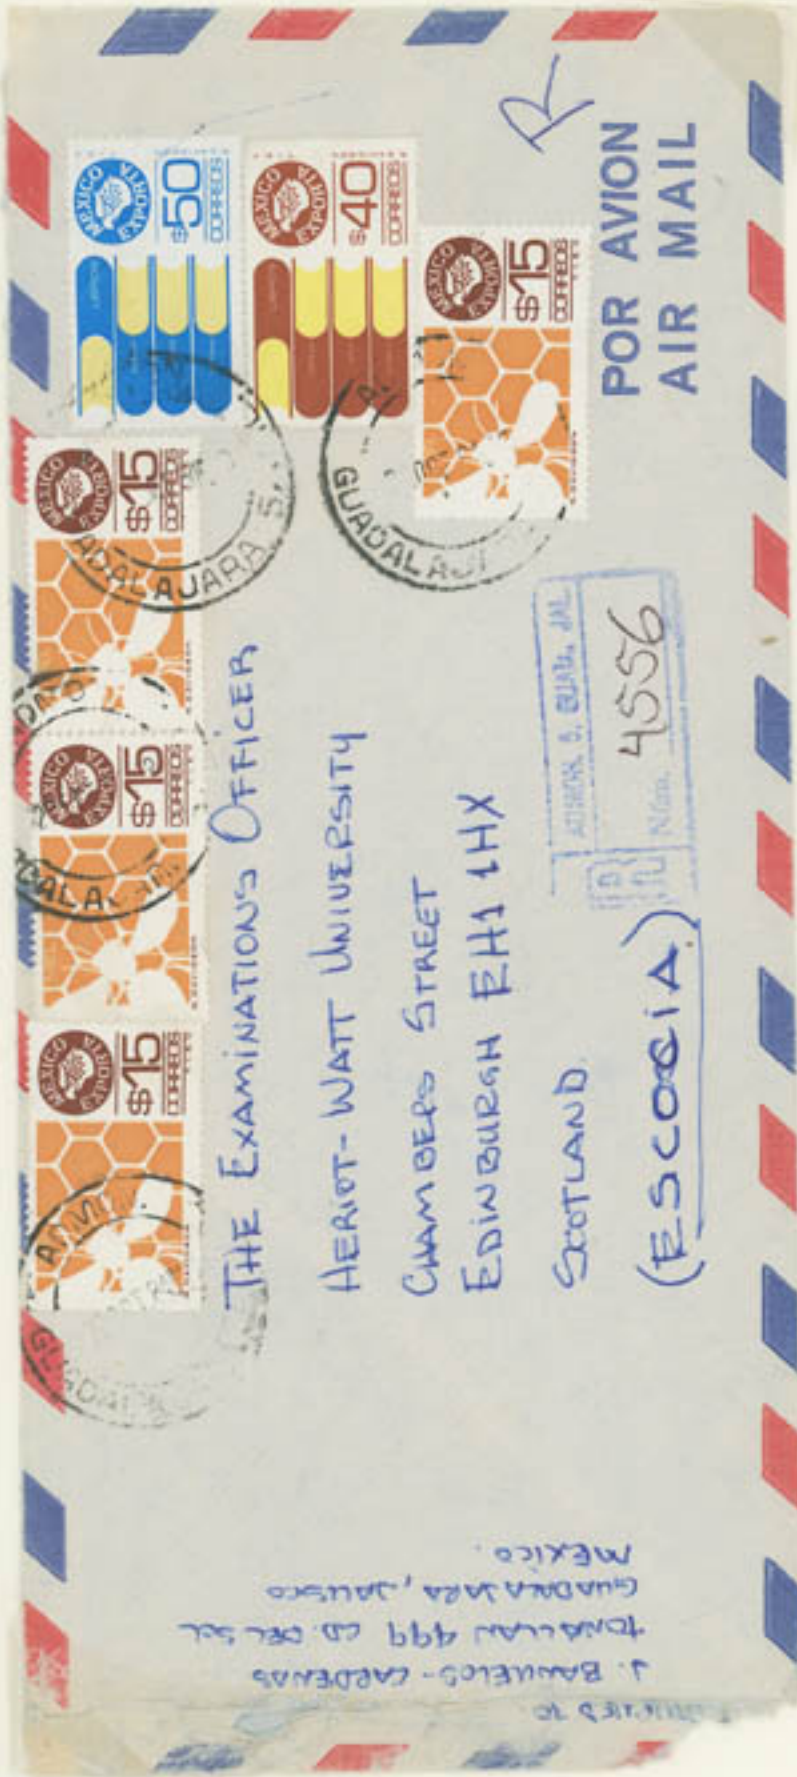 MEXICO EXPORTA
$50
CORREOS
MEXICO EXPORTA
$40
CORREOS
MEXICO EXPORTA
$15
CORREOS
MEXICO EXPORTA
$15
CORREOS
MEXICO EXPORTA
$15
CORREOS
MEXICO EXPORTA
$15
CORREOS
R
POR AVION
AIR MAIL
ADALAJARA
GUADALAJ
DALAJ
ADMON
GUADAL
THE EXAMINATION'S OFFICER
HERIOT-WATT UNIVERSITY
CHAMBERS STREET
EDINBURGH EH1 1HX
SCOTLAND.
(ESCOCIA)
ADMON. 5, GUAD., JAL.
R Núm. 4556
J. BANUELOS-CARDENAS
TONALLAN 499 CD. DEL SOL
GUADALAJARA, JALISCO
MEXICO.